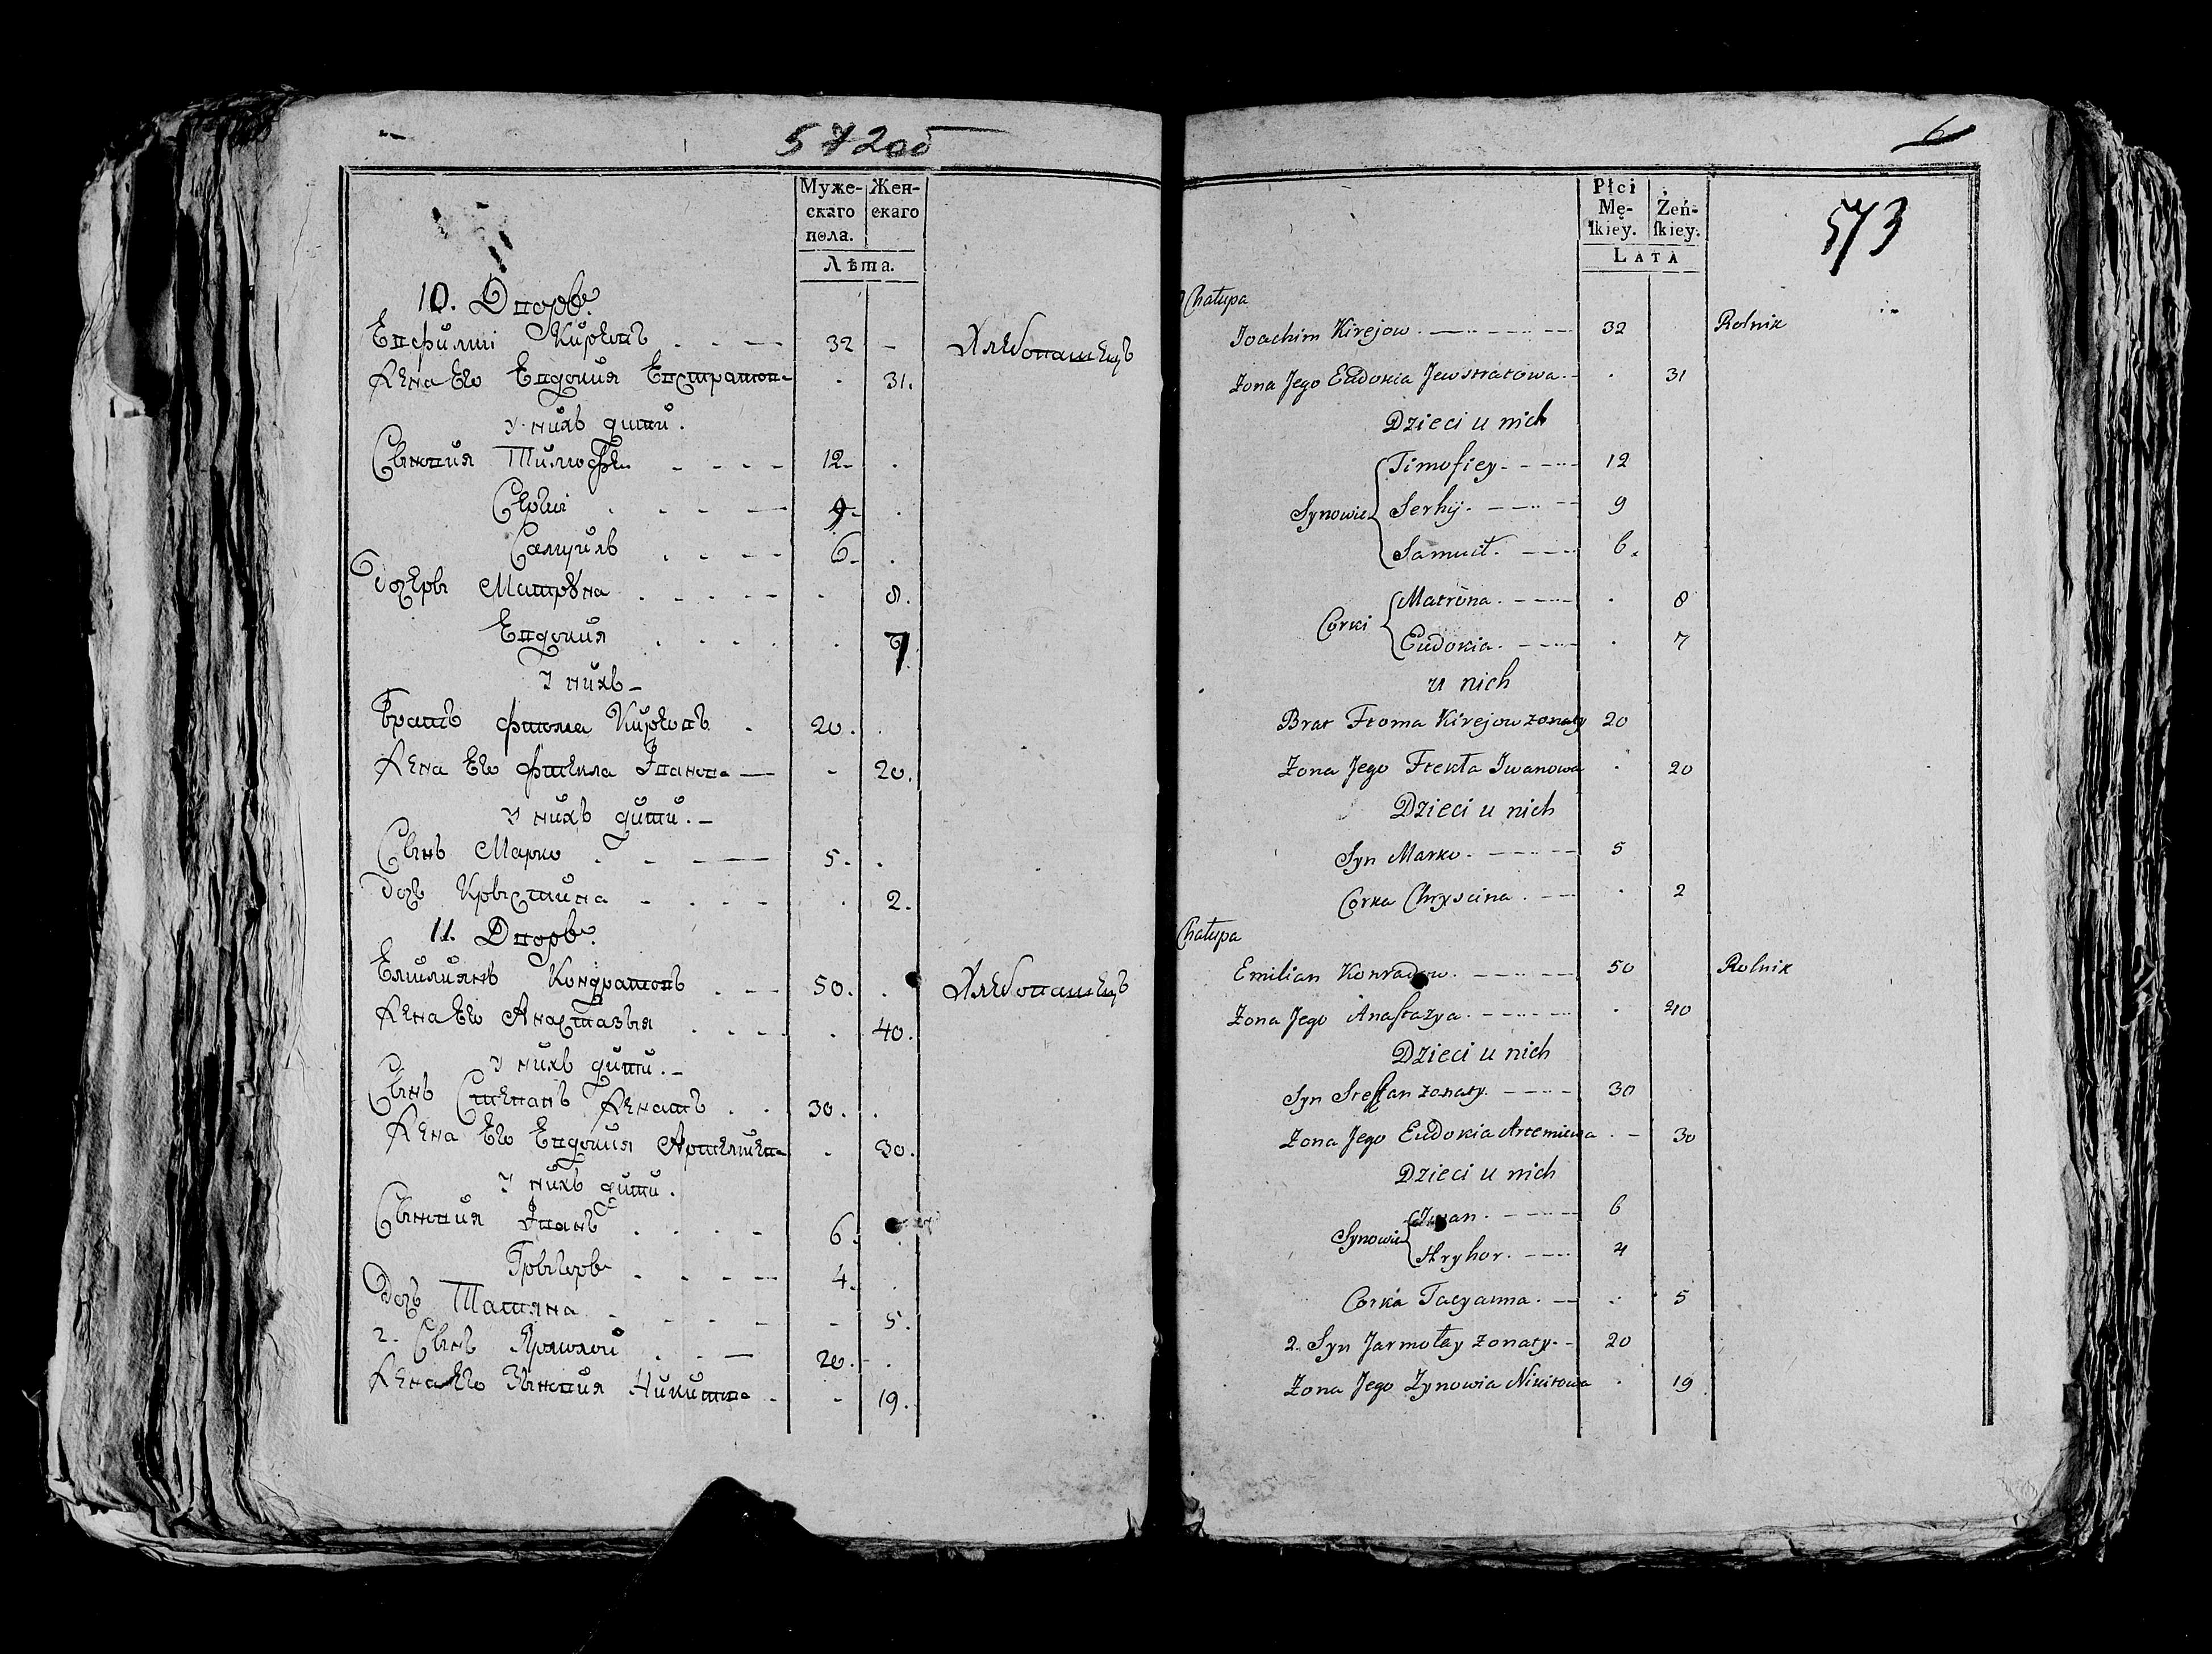 572об
Муже-
скаго
пола.
Жен-
скаго
Лѣта.
10. Дворъ.
Евфимій Киреювъ 32 - Хлебопашецъ
Жена Его Евдокия Евстратова . 31.
у нихъ дити.
Сыновия Тимофѣ 12 .
Сергій 9 .
Самуилъ 6 .
Дочеры Матрона . 8.
Евдокия . 7
У нихъ
Братъ Фтома Киреювъ 20. .
Жена Его Фтекла Іванова - 20.
у нихъ дити.
Сынъ Марко 5. .
Дочъ Крыстина . 2.
11. Дворъ.
Емилиянъ Кондратовъ 50. . Хлебопашецъ
Жена Его Анастазыя . 40.
у нихъ дити.
Сынъ Степанъ Женатъ 30. .
Жена Его Евдокия Артемиева . 30.
У нихъ дити.
Сыновия Іванъ 6. .
Грыгоръ 4. .
Дочъ Татяна - 5.
2. Сынъ Ярмолой 20. .
Жена Его Зыновия Никитова - 19.
6
573
Płci
Mę-
skiey.
Żeń-
skiey.
LATA
Chałupa
Joachim Kirejow 32 Rolnik
Zona Jego Eudokia Jewstratowa . 31
Dzieci u nich
Synowie Timofiey 12
Serhij 9
Samuił 6
Corki Matrona . 8
Eudokia . 7
u nich
Brat Ftoma Kirejow zonaty 20
Zona Jego Ftekła Iwanowa . 20
Dzieci u nich
Syn Marko 5
Corka Chryscina . 2
Chałupa
Emilian Konradow 50 Rolnik
Zona Jego Anastazya . 40
Dzieci u nich
Syn Steffan zonaty 30
Zona Jego Eudokia Artemiewa . 30
Dzieci u nich
Synowie Iwan 6
Hryhor 4
Corka Tacyanna . 5
2. Syn Jarmołay zonaty 20
Zona Jego Zynowia Nikitowa . 19